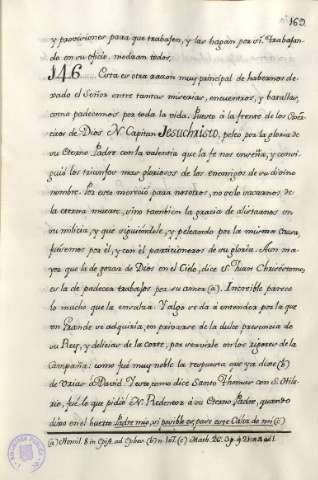 169
y provisiones para que trabajen, y las hagan por sí. Trabajan-
do en su oficio, medran todos.
146. Esta es otra razon muy principal de habernos de-
xado el Señor entre tantas miserias, encuentros, y batallas,
como padecemos por toda la vida. Puesto á la frente de los
de Dios N. Capitan Jesuchristo, peleó por la gloria de
su Eterno Padre con la valentía que la fe nos enseña, y consi-
guió los triunfos mas gloriosos de los enemigos de su divino
nombre. Por este mereció para nosotros, no solo sacarnos de
la eterna muerte, sino tambien la gracia de alistarnos en
su milicia, y que siguiéndole, y peleando por la misma causa,
fuésemos por él, y con él participioneros de su gloria. Aun ma-
yor que la de gozar de Dios en el Cielo, dice S. Juan Chrisóstomo,
es la de padecer trabajos por su amor (a). Increible parece
lo mucho que la ensalza. Y algo se da á entender por la que
un Grande se adquiría, en privarse de la dulce presencia de
su Rey, y delicias de la corte, por servirle en los rigores de la
Campaña: como fué muy noble la respuesta que ya dixe (b)
de Urias á David. Y esto, como dice Santo Thomas con S. Hila-
rio, fué lo que pidió N. Redentor á su Eterno Padre, quando
dixo en el huerto Padre mio, si posible es, pase este Cáliz de mi (c)
(a) Homil. 8 in Epist. ad Ephes. (b) n. 107. (c) Math. 26.